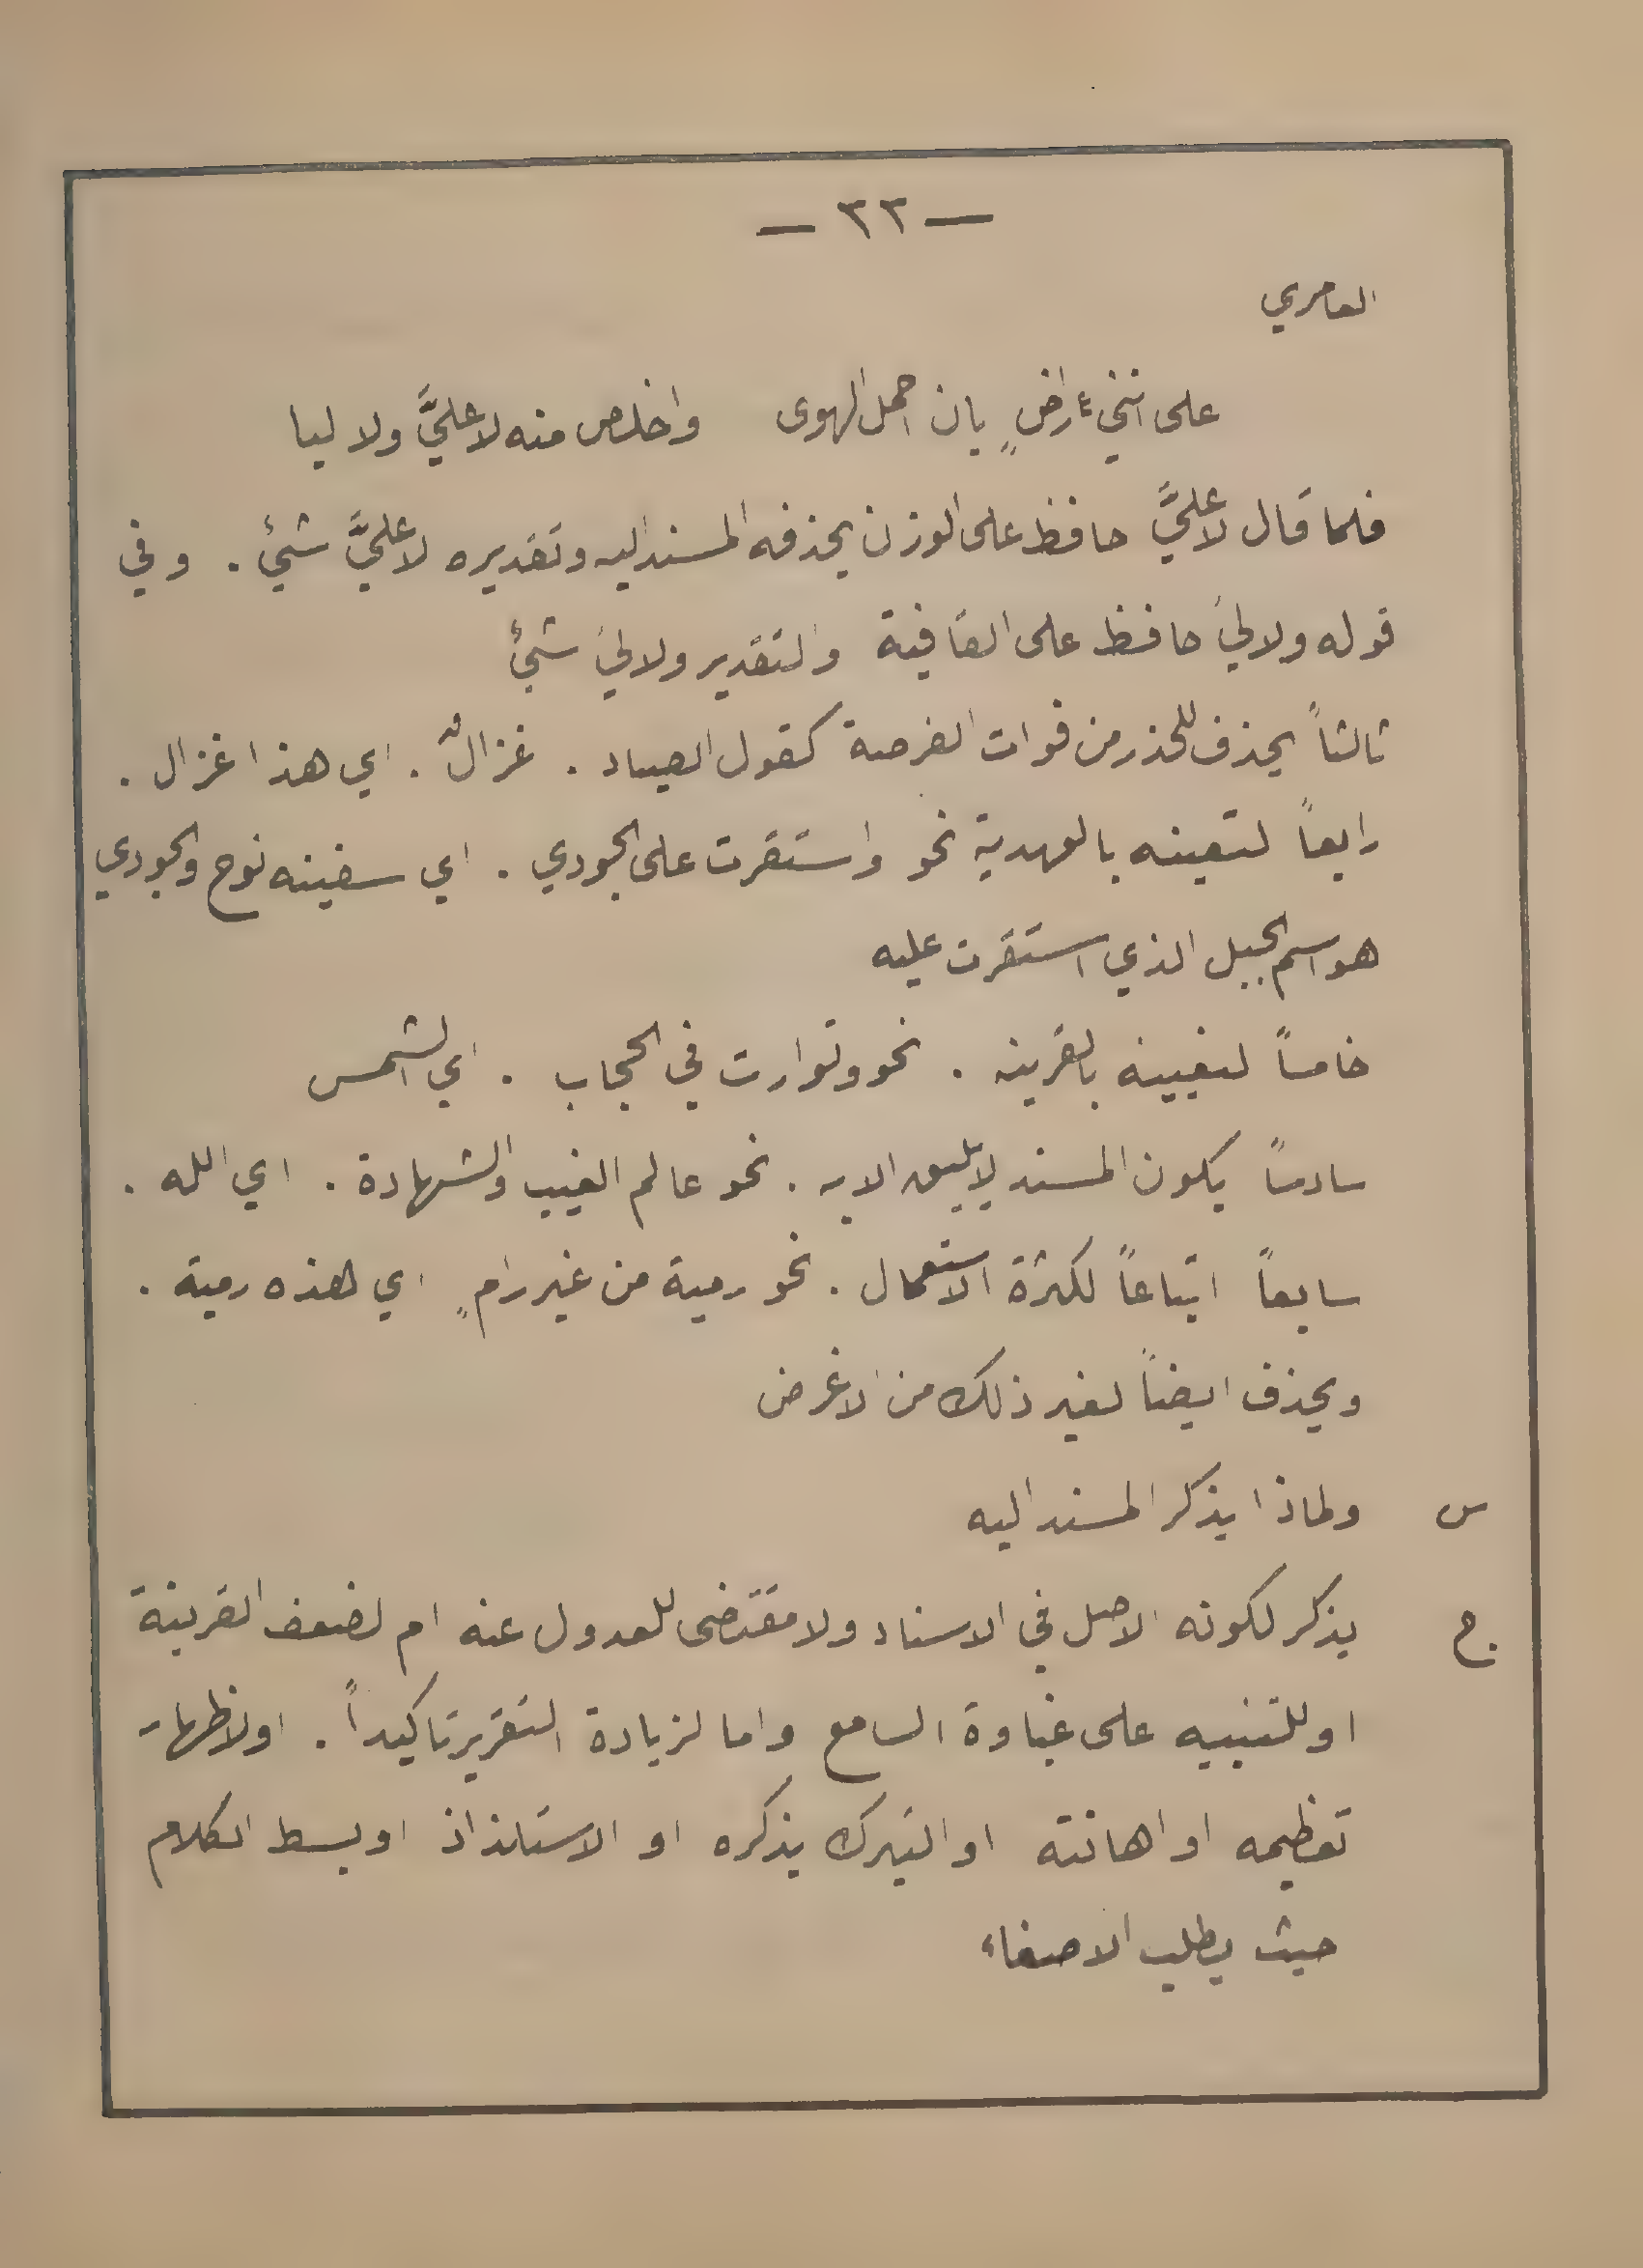 — ٣٢ —
العامري
على انني راضٍ بان احمل الهوى واخلص منه لا عليَّ ولا ليا
فلما قال لا عليَّ حافظ على الوزن بحذفه المسند اليه وتقديره لا عليَّ شيئ . وفي
قوله ولا لي حافظ على القافية والتقدير ولا لي شيئ
ثالثاً يحذف للحذر من فوات الفرصة كقول الصياد . غزالٌ . اي هذا غزال .
رابعاً لتعينه بالعهدية نحو واستقرت على الجودي . اي سفينه نوح والجودي
هو اسم الجبل الذي استقرت عليه
خامساً لتعيينه بالقرينه . نحو وتوارت في الحجاب . اي الشمس
سادساً يكون المسند لا يليق الا به . نحو عالم الغيب والشهادة . اي الله .
سابعاً اتباعاً لكثرة الاستعمال . نحو رمية من غير رامٍ اي هذه رمية .
ويحذف ايضاً لغير ذلك من الاغرض
س ولماذا يذكر المسند اليه
ج يذكر لكونه الاصل في الاسناد ولا مقتضى للعدول عنه ام لضعف القرينة
او للتنبيه على غباوة السامع واما لزيادة التقرير تاكيداً . او لاظهار
تعظيمه او اهانته او التبرك بذكره او الاستلذاذ او بسط الكلام
حيث يطلب الاصغاء